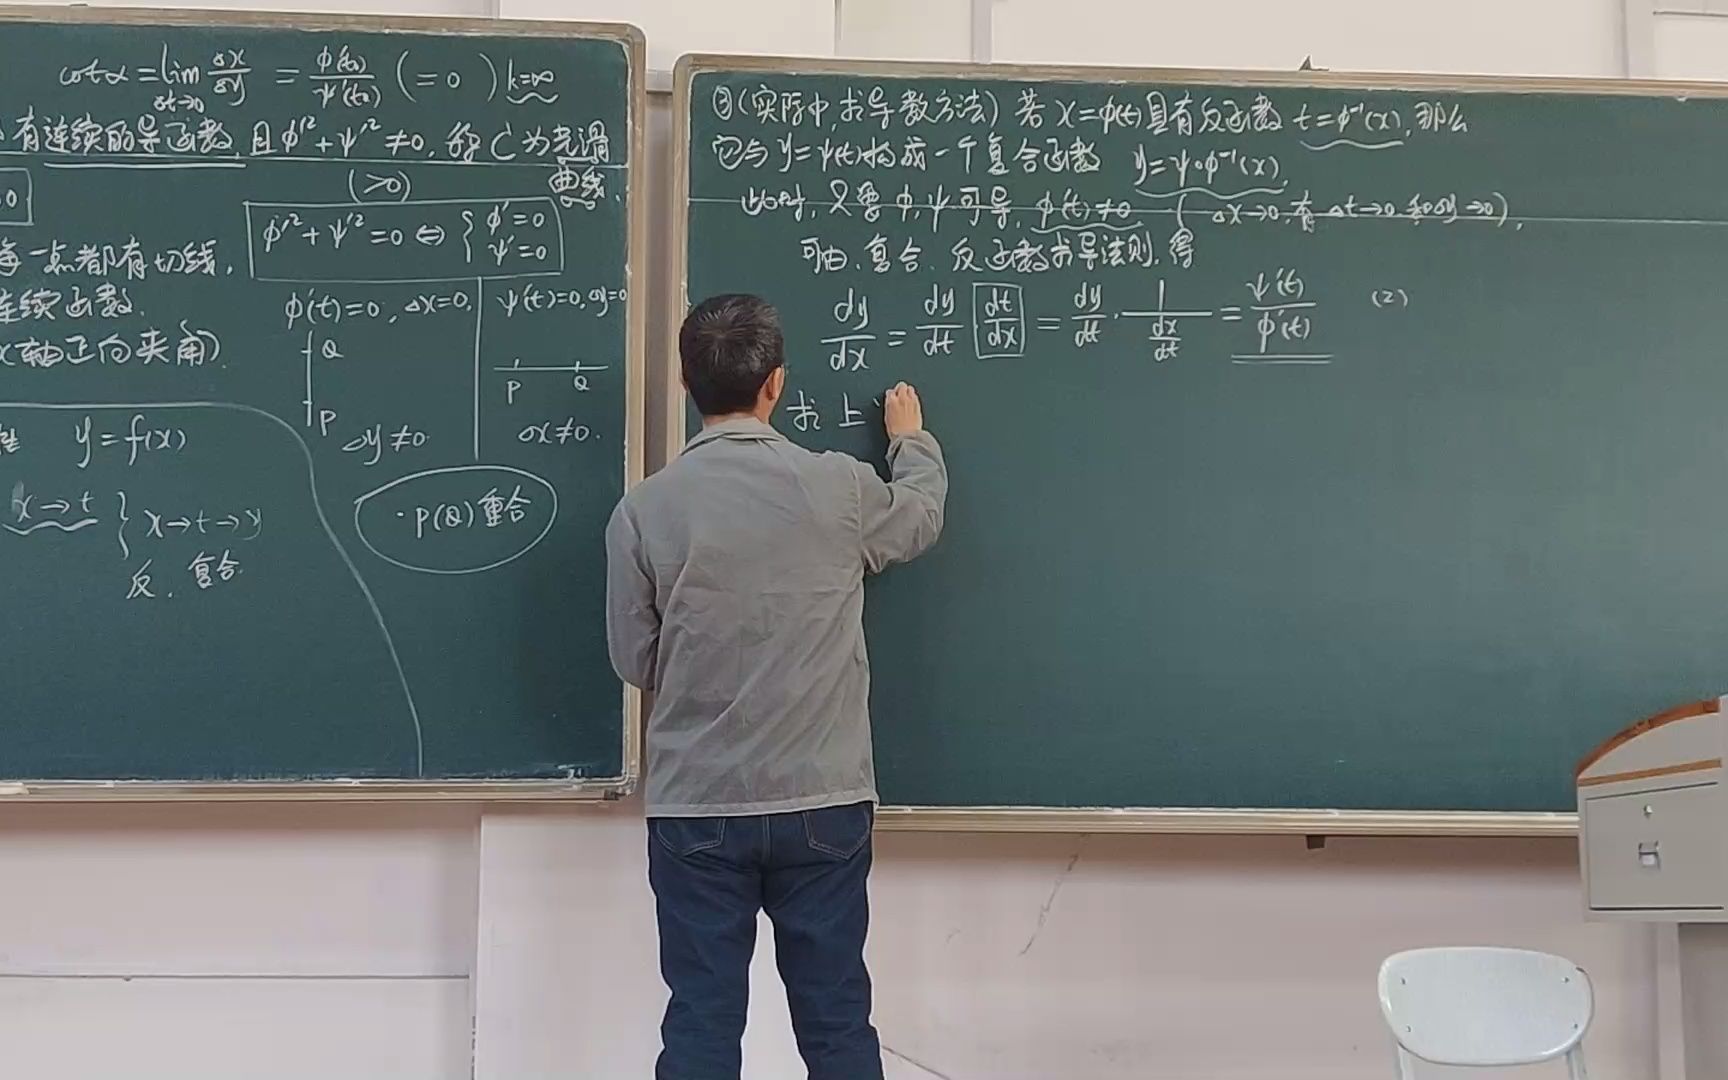 cotα = lim Δt→0 Δx/Δy = φ'(t₀)/ψ'(t₀) (=0) k=∞
有连续的导函数,且φ'²+ψ'²≠0,称C为光滑
(>0)
曲线.
0
φ'²+ψ'²=0 ⇔ { φ'=0 ψ'=0
每一点都有切线,
连续函数.
x轴正向夹角).
φ'(t)=0, Δx=0,
Q
P
Δy≠0
ψ'(t)=0, Δy=0
P Q
Δx≠0.
y=f(x)
x→t } x→t→y
反. 复合.
·P(Q)重合
③(实际中,求导数方法) 若 x=φ(t)具有反函数 t=φ⁻¹(x),那么
它与 y=ψ(t)构成一个复合函数 y=ψ∘φ⁻¹(x),
此时,只要φ,ψ可导,φ'(t)≠0 (Δx→0,有Δt→0和Δy→0),
可由.复合.反函数求导法则,得
dy/dx = dy/dt · dt/dx = dy/dt · 1/(dx/dt) = ψ'(t)/φ'(t) (2)
求上